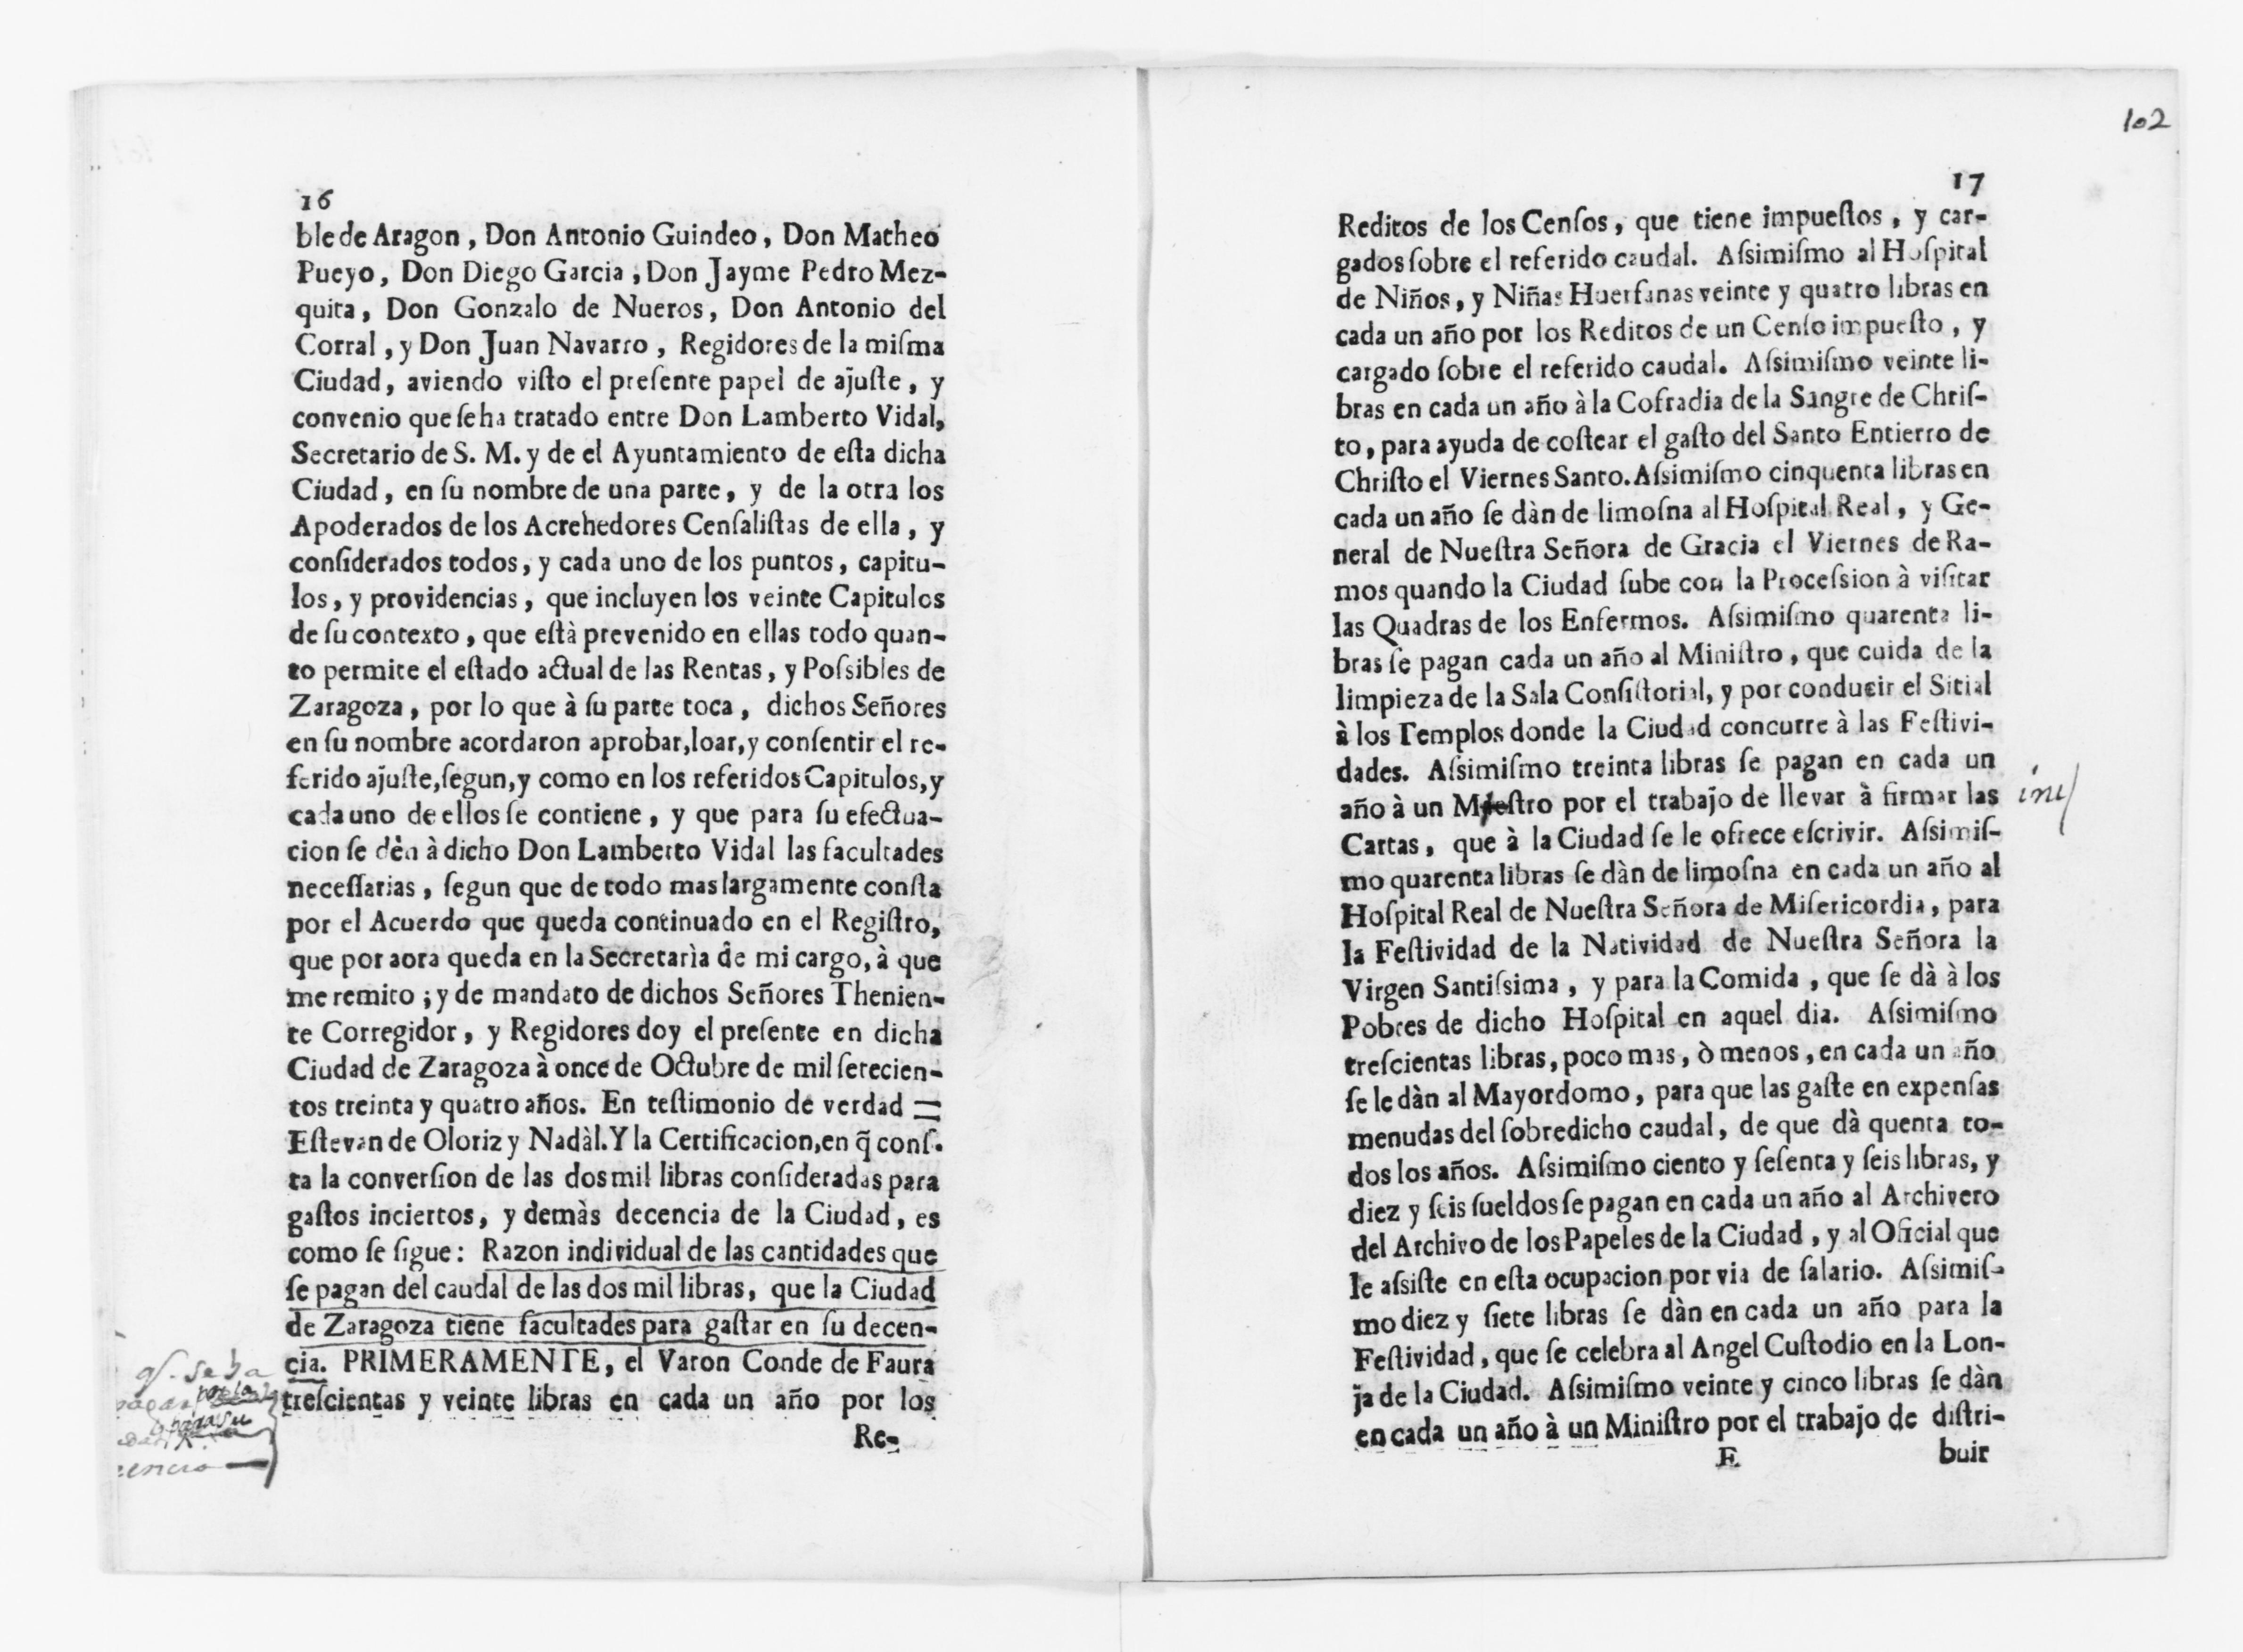 16
ble de Aragon, Don Antonio Guindeo, Don Matheo
Pueyo, Don Diego Garcia, Don Jayme Pedro Mez-
quita, Don Gonzalo de Nueros, Don Antonio del
Corral, y Don Juan Navarro, Regidores de la miſma
Ciudad, aviendo viſto el preſente papel de ajuſte, y
convenio que ſe ha tratado entre Don Lamberto Vidal,
Secretario de S. M. y de el Ayuntamiento de eſta dicha
Ciudad, en ſu nombre de una parte, y de la otra los
Apoderados de los Acrehedores Cenſaliſtas de ella, y
conſiderados todos, y cada uno de los puntos, capitu-
los, y providencias, que incluyen los veinte Capitulos
de ſu contexto, que eſtà prevenido en ellas todo quan-
to permite el eſtado actual de las Rentas, y Poſsibles de
Zaragoza, por lo que à ſu parte toca, dichos Señores
en ſu nombre acordaron aprobar, loar, y conſentir el re-
ferido ajuſte, ſegun, y como en los referidos Capitulos, y
cada uno de ellos ſe contiene, y que para ſu efectua-
cion ſe dèn à dicho Don Lamberto Vidal las facultades
neceſſarias, ſegun que de todo mas largamente conſta
por el Acuerdo que queda continuado en el Regiſtro,
que por aora queda en la Secretarìa de mi cargo, à que
me remito; y de mandato de dichos Señores Thenien-
te Corregidor, y Regidores doy el preſente en dicha
Ciudad de Zaragoza à once de Octubre de mil ſetecien-
tos treinta y quatro años. En teſtimonio de verdad =
Eſtevan de Oloriz y Nadàl. Y la Certificacion, en q̃ conſ-
ta la converſion de las dos mil libras conſideradas para
gaſtos inciertos, y demàs decencia de la Ciudad, es
como ſe ſigue: Razon individual de las cantidades que
ſe pagan del caudal de las dos mil libras, que la Ciudad
de Zaragoza tiene facultades para gaſtar en ſu decen-
cia. PRIMERAMENTE, el Varon Conde de Faura
treſcientas y veinte libras en cada un año por los
Re-
102
17
Reditos de los Cenſos, que tiene impueſtos, y car-
gados ſobre el referido caudal. Aſsimiſmo al Hoſpital
de Niños, y Niñas Huerfanas veinte y quatro libras en
cada un año por los Reditos de un Cenſo impueſto, y
cargado ſobre el referido caudal. Aſsimiſmo veinte li-
bras en cada un año à la Cofradia de la Sangre de Chriſ-
to, para ayuda de coſtear el gaſto del Santo Entierro de
Chriſto el Viernes Santo. Aſsimiſmo cinquenta libras en
cada un año ſe dàn de limoſna al Hoſpital Real, y Ge-
neral de Nueſtra Señora de Gracia el Viernes de Ra-
mos quando la Ciudad ſube con la Proceſsion à viſitar
las Quadras de los Enfermos. Aſsimiſmo quarenta li-
bras ſe pagan cada un año al Miniſtro, que cuida de la
limpieza de la Sala Conſiſtorial, y por conducir el Sitial
à los Templos donde la Ciudad concurre à las Feſtivi-
dades. Aſsimiſmo treinta libras ſe pagan en cada un
año à un Maeſtro por el trabajo de llevar à firmar las ini/
Cartas, que à la Ciudad ſe le ofrece eſcrivir. Aſsimiſ-
mo quarenta libras ſe dàn de limoſna en cada un año al
Hoſpital Real de Nueſtra Señora de Miſericordia, para
la Feſtividad de la Natividad de Nueſtra Señora la
Virgen Santiſsima, y para la Comida, que ſe dà à los
Pobres de dicho Hoſpital en aquel dia. Aſsimiſmo
treſcientas libras, poco mas, ò menos, en cada un año
ſe le dàn al Mayordomo, para que las gaſte en expenſas
menudas del ſobredicho caudal, de que dà quenta to-
dos los años. Aſsimiſmo ciento y ſeſenta y ſeis libras, y
diez y ſeis ſueldos ſe pagan en cada un año al Archivero
del Archivo de los Papeles de la Ciudad, y al Oficial que
le aſsiſte en eſta ocupacion por via de ſalario. Aſsimiſ-
mo diez y ſiete libras ſe dàn en cada un año para la
Feſtividad, que ſe celebra al Angel Cuſtodio en la Lon-
ja de la Ciudad. Aſsimiſmo veinte y cinco libras ſe dàn
en cada un año à un Miniſtro por el trabajo de diſtri-
E buir